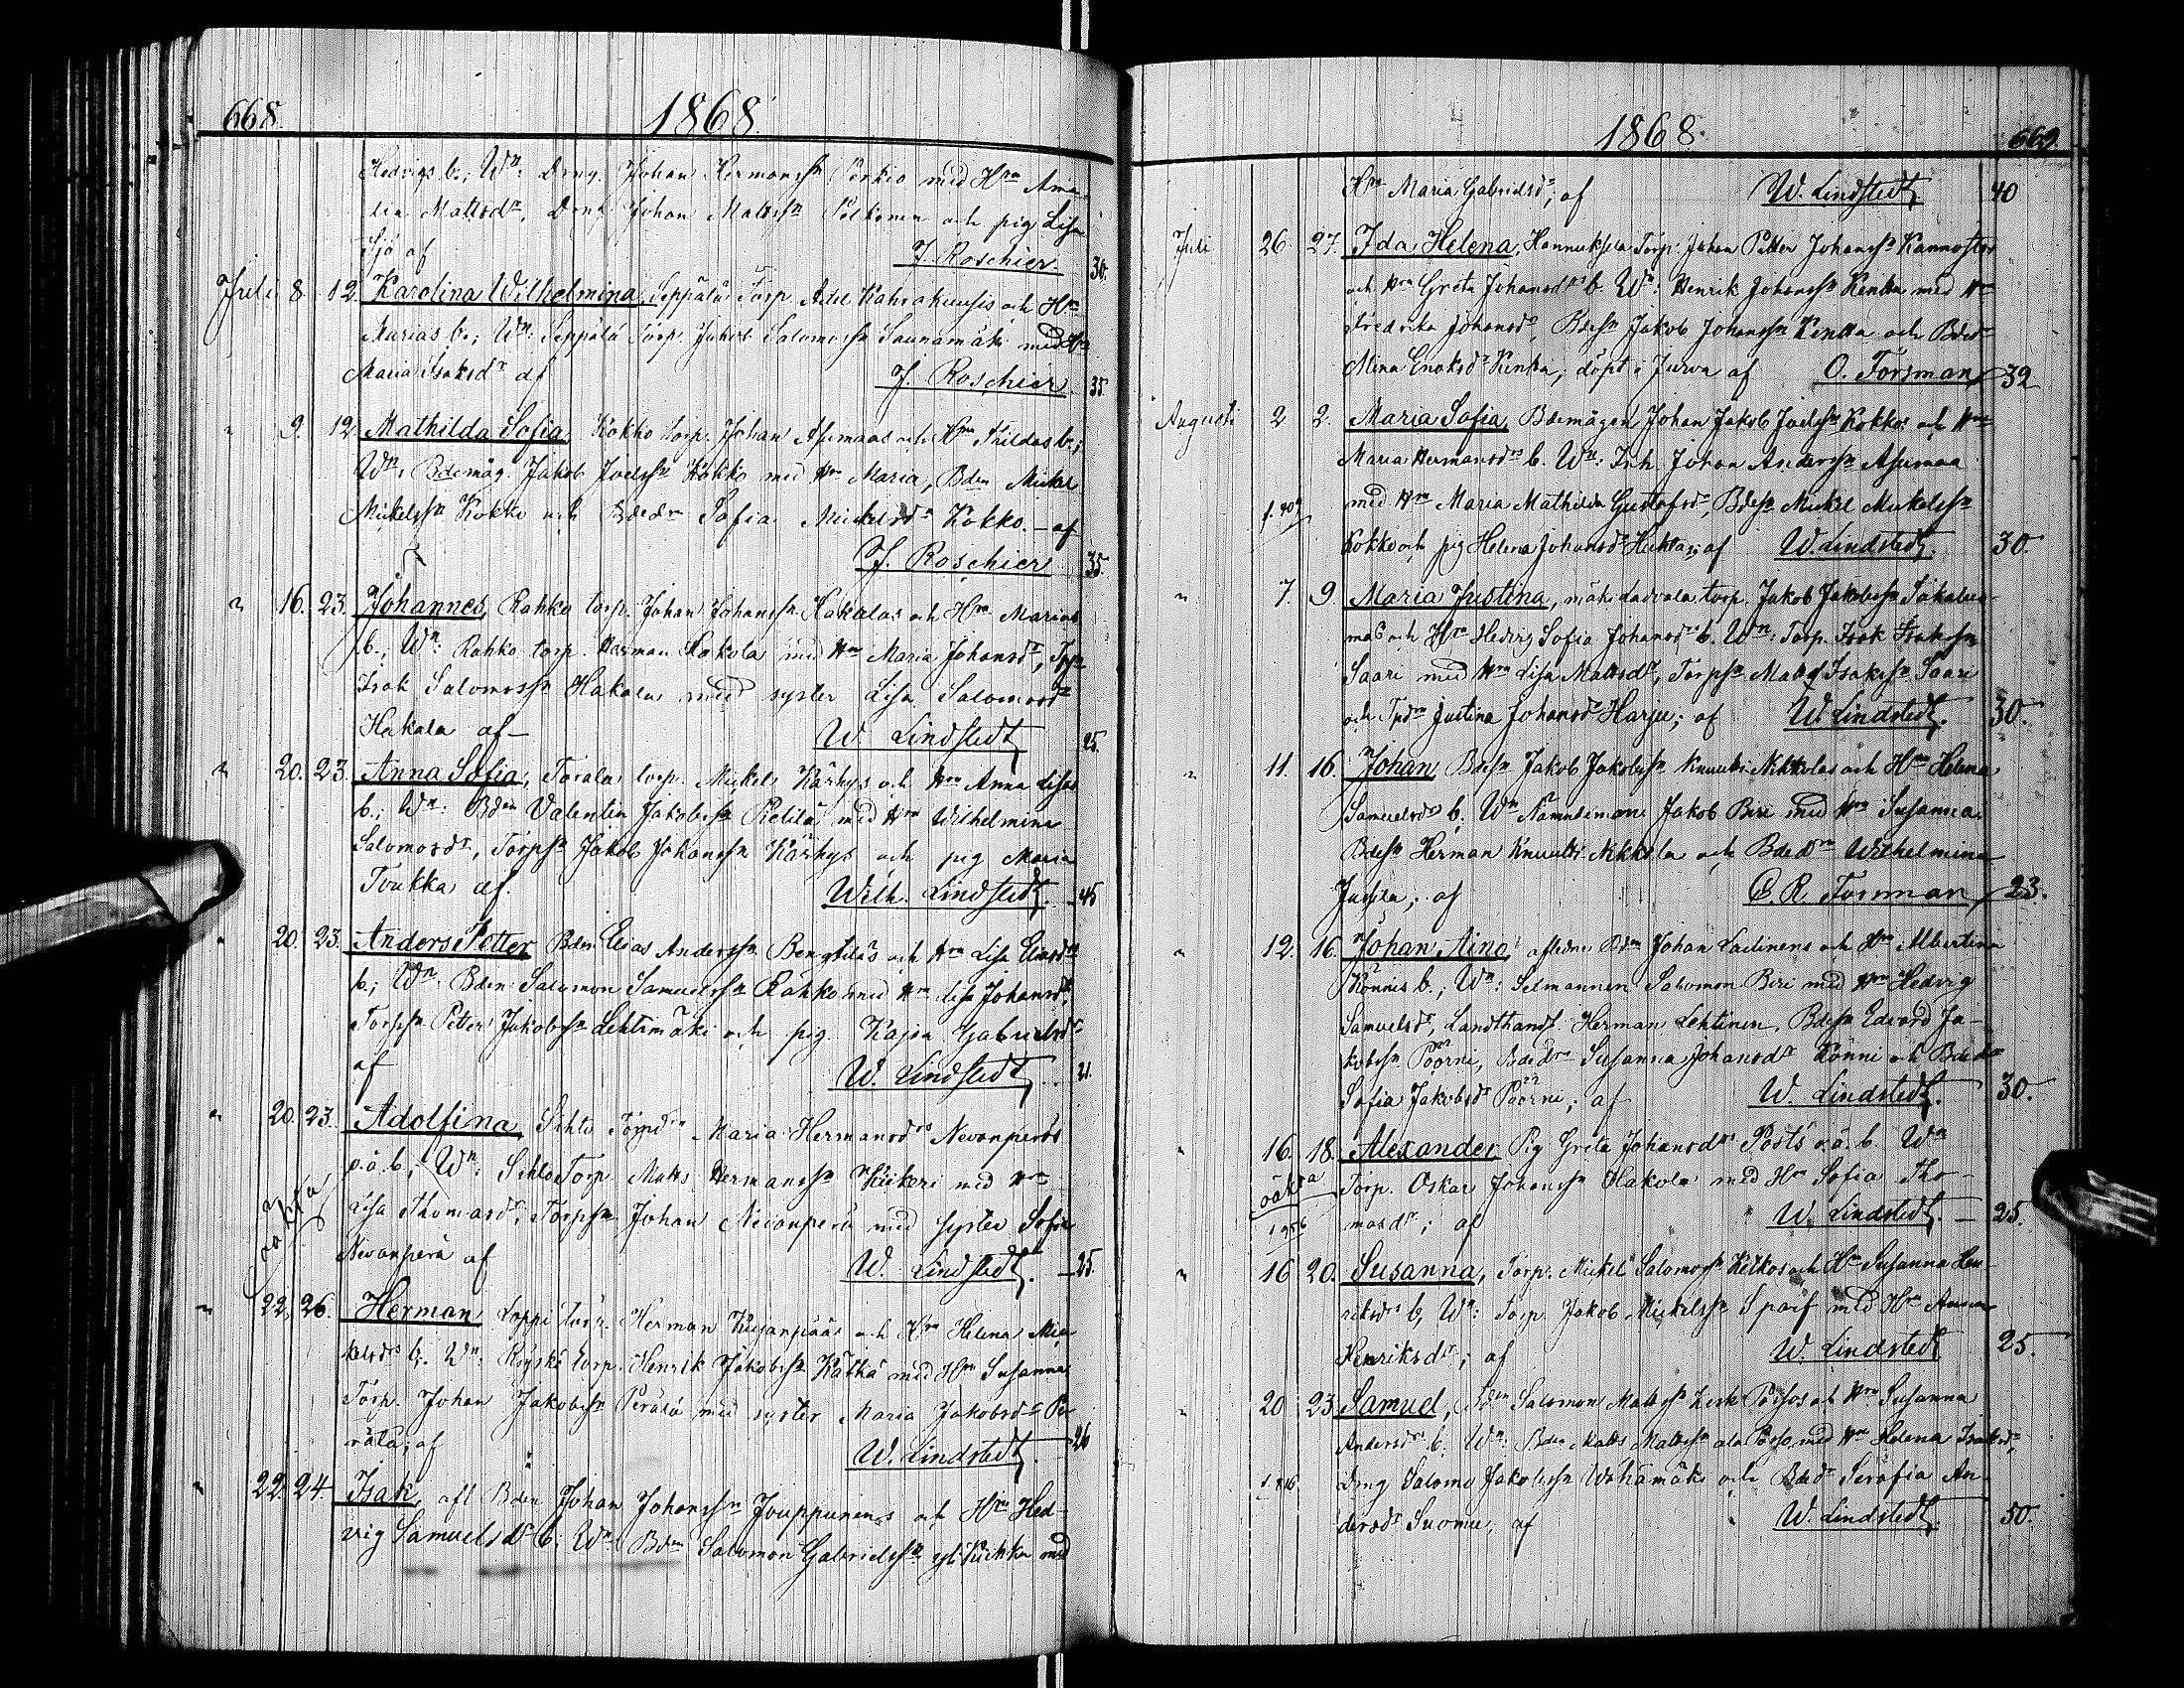 668. 1868.
Hedvigs b.; Wn: Dreng. Johan Hermanssn Perkiö med Hru Ama-
lia Mattsdr, Dreng Johan Mattssn Pelkonen och pig Lisa
Sjö af J. Roschier 30.
Juli 8. 12. Karolina Wilhelmina, Seppälä Torp. Adel och Hru
Marias b.; Wn: Seppälä Torp. Jakob Salomonssn Saunamäki med Hru
Maria Isaksdr af J. Roschier 35.
" 9. 12. Mathilda Sofia, Kokko torp. Johan Asumaas och Hru Tildas b.;
Wn: Bdemåg Jakob Joelssn Kokko med Hru Maria, Bden Mickel
Mickelssn Kokko och Bdedrn Sofia Mickelsdr Kokko. – af
J. Roschier 35.
" 16. 23. Johannes, Rahko torp. Johan Johanssn Hakalas och Hru Marias
b.; Wn: Rahko torp. Herman Hakola med Hru Maria Johansdr,
Isak Salomonssn Hakala med syster Lisa Salomonsdr
Hakala af – W. Lindstedt 25.
" 20. 23. Anna Sofia, torp. Mickel Kärhys och Hru Anna Lisas
b.; Wn: Bden Valentin Jakobssn Pietilä med Hru Wilhelmina
Salomonsdr, Torpsn Jakob Johanssn Kärhys och pig Maria
Tuukka af. Wilh. Lindstedt. 45
" 20. 23. Anders Petter, Bden Elias Anderssn Bengtiläs och Hru Lisa Eliasdrs
b.; Wn: Bden Salomon Samuelssn Rahko med Hru Lisa Johansdr,
Torpsn Petter Jakobssn Lehtimäki och pig. Kajsa Gabrielsdr
af W. Lindstedt 21.
" 20. 23. Adolfina, Sihto Maria Hermansdrs Nevanperäs
o.ä. b.; Wn: Sihto Torp Matts Hermanssn Kiikeri med Hru
Lisa Thomasdr, Torpsn Johan Nevanperä med syster Sofia
oäkta
Nevanperä af W. Lindstedt. 25.
" 22. 26. Herman, Loppi torp. Herman och Hru Helena Mic-
kelsdrs b. Wn: Röyskö torp. Henrik Jakobssn Kätkä med Hru Susanna
Torp. Johan Jakobssn Perälä med syster Maria Jakobsdr Pe-
rälä; af W. Lindstedt. 26
" 22. 24. Isak, afl Bden Johan Johanssn Jouppunens och Hru Hed-
vig Samuelsdrs b. Wn: Bden Salomon Gabrielssn yli Kiikka med
1868. 669.
Hru Maria Gabrielsdr; af W. Lindstedt. 40
Juli 26. 27. Ida Helena, Hannuksela Torp. Johan Petter Johanssn Kannostos
och Hru Greta Johansdrs b. Wn: Henrik Johanssn Kentta med Hru
Fredrika Johansdr, Bdessn Jakob Johanssn Kentta och Bdedr
Mina Enoksdr Kentta; döpt i Jurva af O. Forsman 32
Augusti 2 2. Maria Sofia, Bdemågen Johan Jakob Joelssn Kokkos och Hru
Maria Hermansdrs b. Wn: Inh. Johan Anderssn Asumaa
med Hru Maria Mathilda Gustafsdr, Bdesn Mickel Mickelssn
Kokko och pig Helena Johansdr Huhta; af W. Lindstedt. 30.
" 7. 9. Maria Justina, torp. Jakob Jakobssn
och Hru Hedvig Sofia Johansdrs b. Wn: Torp. Isak Isakssn
Saari med Hru Lisa Mattsdr, Torpsn Matts Isakssn Saari
och Tpdrn Justina Johansdr Harju; af W. Lindstedt. 30.
" 11. 16. Johan, Bdesn Jakob Jakobssn Knuuts Nikkolas och Hru Helena
Samuelsdrs b. Wn Nämndemann Jakob Beri med Hru Susanna
Bdesn Herman Knuuts Nikkola och Bdedrn Wilhelmina
Jussila; af C. R. Forsman 23.
" 12. 16. Johan Aino, aflidne Bden Johan Laitinens och Hru Albertina
Könnis b.; Wn: Sexmannen Salomon Beri med Hru Hedvig
Samuelsdr, Landthandl. Herman Lehtinen, Bdesn Edvard Ja-
kobssn Pöörni, Bdedrn Susanna Johansdr Könni och Bdedr
Sofia Jakobsdr Pöörni; af W. Lindstedt. 30.
" 16. 18. Alexander, Pig Greta Johansdrs Posts o.ä. b. Wn
oäkta
Torp. Oskar Johanssn Hakola med Hru Sofia Tho-
masdr; af W. Lindstedt. – 25.
" 16 20. Susanna, Torp. Mickel Salomonssn Ketkos och Hru Susanna Hen-
riksdrs b, Wn: Torp Jakob Mickelssn Sparf med Hru Anna
Henriksdr; af W. Lindstedt 25.
" 20 23. Samuel, Bden Salomon Mattssn Possos och Hru Susanna
Andersdrs b. Wn: Bden Matts Mattssn ala Posso med Hru Helena Isaksdr,
Dreng Salomo Jakobssn Wähämäki och Bdedr Serafia An-
dersdr Suomu; af W. Lindstedt. 50.